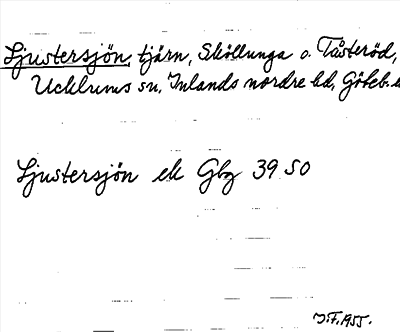 Ljustersjön, tjärn, Sköllunga o. Tåsteröd,
Ucklums sn, Inlands nordre hd, Göteb.
Ljustersjön ek Gbg 39 SO
J.F. 1955.